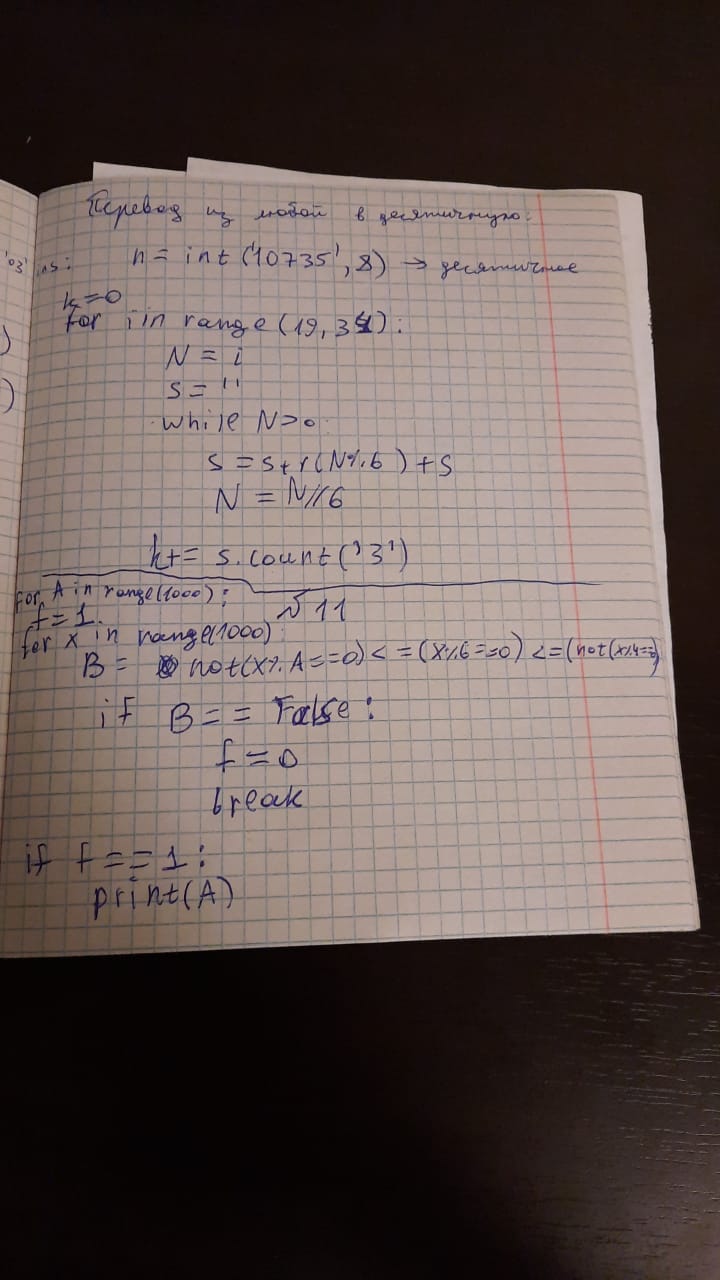 Перевод из любой в десятичную:
'03' ins: n = int('10735', 8) → десятичное
k=0
for i in range(19, 34):
N = i
s = ''
while N>0:
s = str(N%6) + s
N = N//6
k+= s.count('3')
for A in range(1000):
№11
f=1.
for x in range(1000):
B = not(x%A==0)<=(x%6==0)<=(not(x%4==0)
if B == False:
f=0
break
if f==1:
print(A)